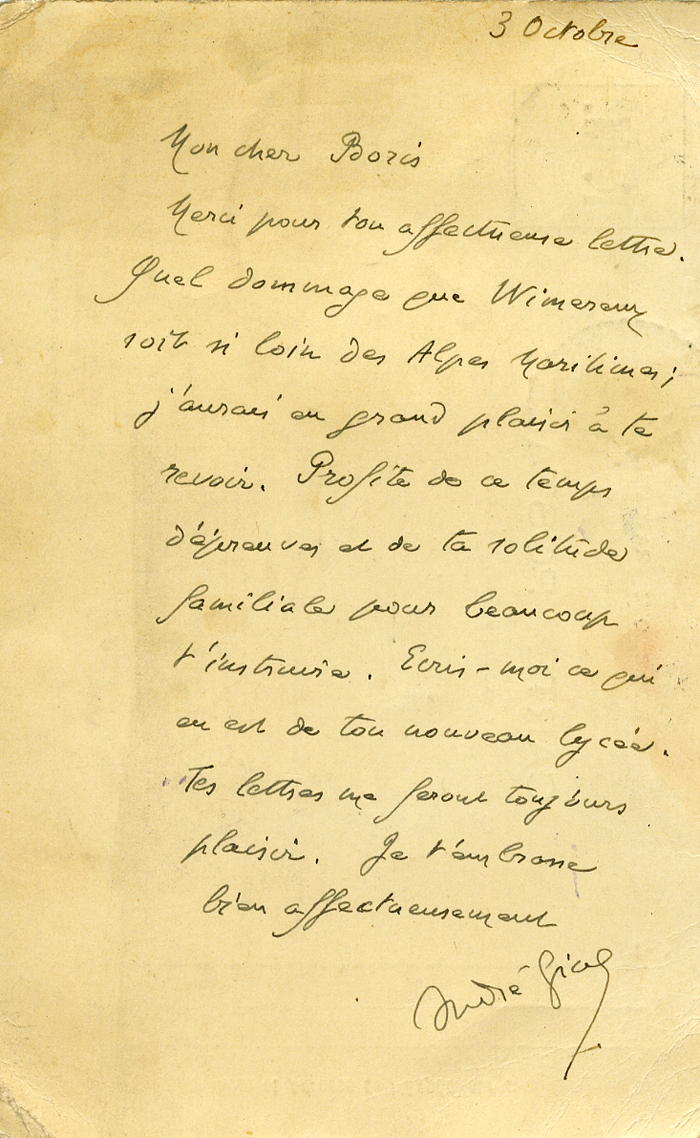 3 Octobre
Mon cher Boris
Merci pour ton affectueuse lettre.
Quel dommage que Wimereux
soit si loin des Alpes Maritimes ;
j'aurais eu grand plaisir à te
revoir. Profite de ce temps
d'épreuves et de ta solitude
familiale pour beaucoup
t'instruire. Ecris-moi ce qui
en est de ton nouveau lycée.
Tes lettres me feront toujours
plaisir. Je t'embrasse
bien affectueusement
André Gide